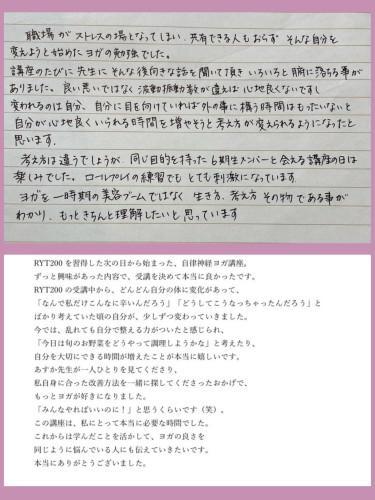 職場がストレスの場となってしまい、共有できる人もおらず そんな自分を
変えようと始めたヨガの勉強でした。
講座のたびに先生にそんな後向きな話を聞いて頂き いろいろと腑に落ちる事が
ありました。良い悪いではなく波動の振動数が違えば心地良くないですし
変われるのは自分、自分に目を向けていれば外の事に構う時間はもったいないと
自分が心地良くいられる時間を増やそうと考え方が変えられるようになったと
思います。
考え方は違うでしょうが、同じ目的を持った6期生メンバーと会える講座の日は
楽しみでした。ロールプレイの練習でも とても刺激になっています。
ヨガを一時期の美容ブームではなく 生き方、考え方 その物である事が
わかり、もっときちんと理解したいと思っています
RYT200を習得した次の日から始まった、自律神経ヨガ講座。
ずっと興味があった内容で、受講を決めて本当に良かったです。
RYT200の受講中から、どんどん自分の体に変化があって、
「なんで私だけこんなに辛いんだろう」「どうしてこうなっちゃったんだろう」と
ばかり考えていた頃の自分が、少しずつ変わっていきました。
今では、乱れても自分で整える力がついたと感じられ、
「今日は旬のお野菜をどうやって調理しようかな」と考えたり、
自分を大切にできる時間が増えたことが本当に嬉しいです。
あすか先生が一人ひとりを見てくださり、
私自身に合った改善方法を一緒に探してくださったおかげで、
もっとヨガが好きになりました。
「みんなやればいいのに！」と思うくらいです（笑）。
この講座は、私にとって本当に必要な時間でした。
これからは学んだことを活かして、ヨガの良さを
同じように悩んでいる人にも伝えていきたいです。
本当にありがとうございました。